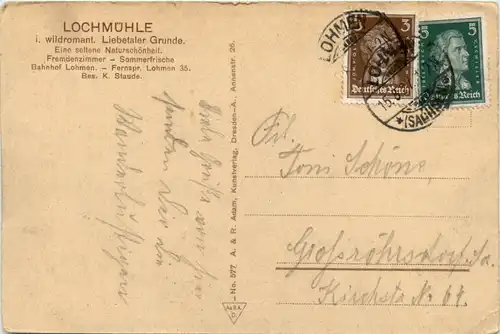 LOCHMÜHLE
i. wildromant. Liebetaler Grunde.
Eine seltene Naturschönheit.
Fremdenzimmer – Sommerfrische
Bahnhof Lohmen. – Fernspr. Lohmen 35.
Bes. K. Staude.
Viele Grüße von hier
senden Dir die
No. 977 A. & R. Adam, Kunstverlag, Dresden-A., Annenstr. 26.
3 3
Deutsches Reich
5 5
Deutsches Reich
LOHMEN
LOHMEN
(SACHSEN)
Frl.
Toni Schöne,
Großröhrsdorf i. Sa.
Kirchstr. No 64.